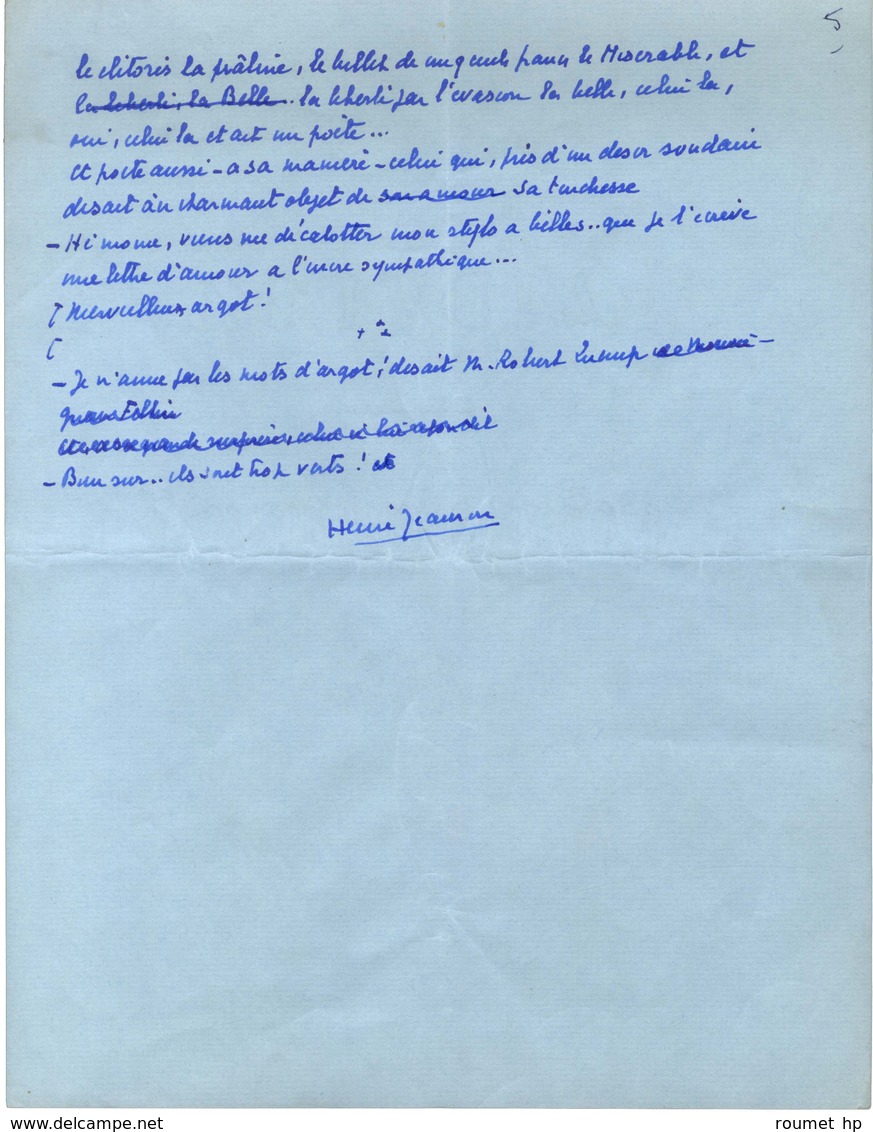 5
le clitoris la prâline, le billet de cinq cents francs le Miserable, et
la liberté, la Belle.. la liberté par l'evasion la belle, celui la,
oui, celui la etait un poète...
et poete aussi - a sa maniere - celui qui, pris d'un desir soudain
disait à un charmant objet de son amour sa turchesse
- Hé mome, viens me décalotter mon stylo a billes.. que je t'ecrive
une lettre d'amour a l'encre sympathique...
[ Merveilleux argot!
[
+ + +
- Je n'aime pas les mots d'argot! disait M. Robert
- Bien sur.. ils sont trop verts! et
Henri Jeanson
www.delcampe.net
roumet hp